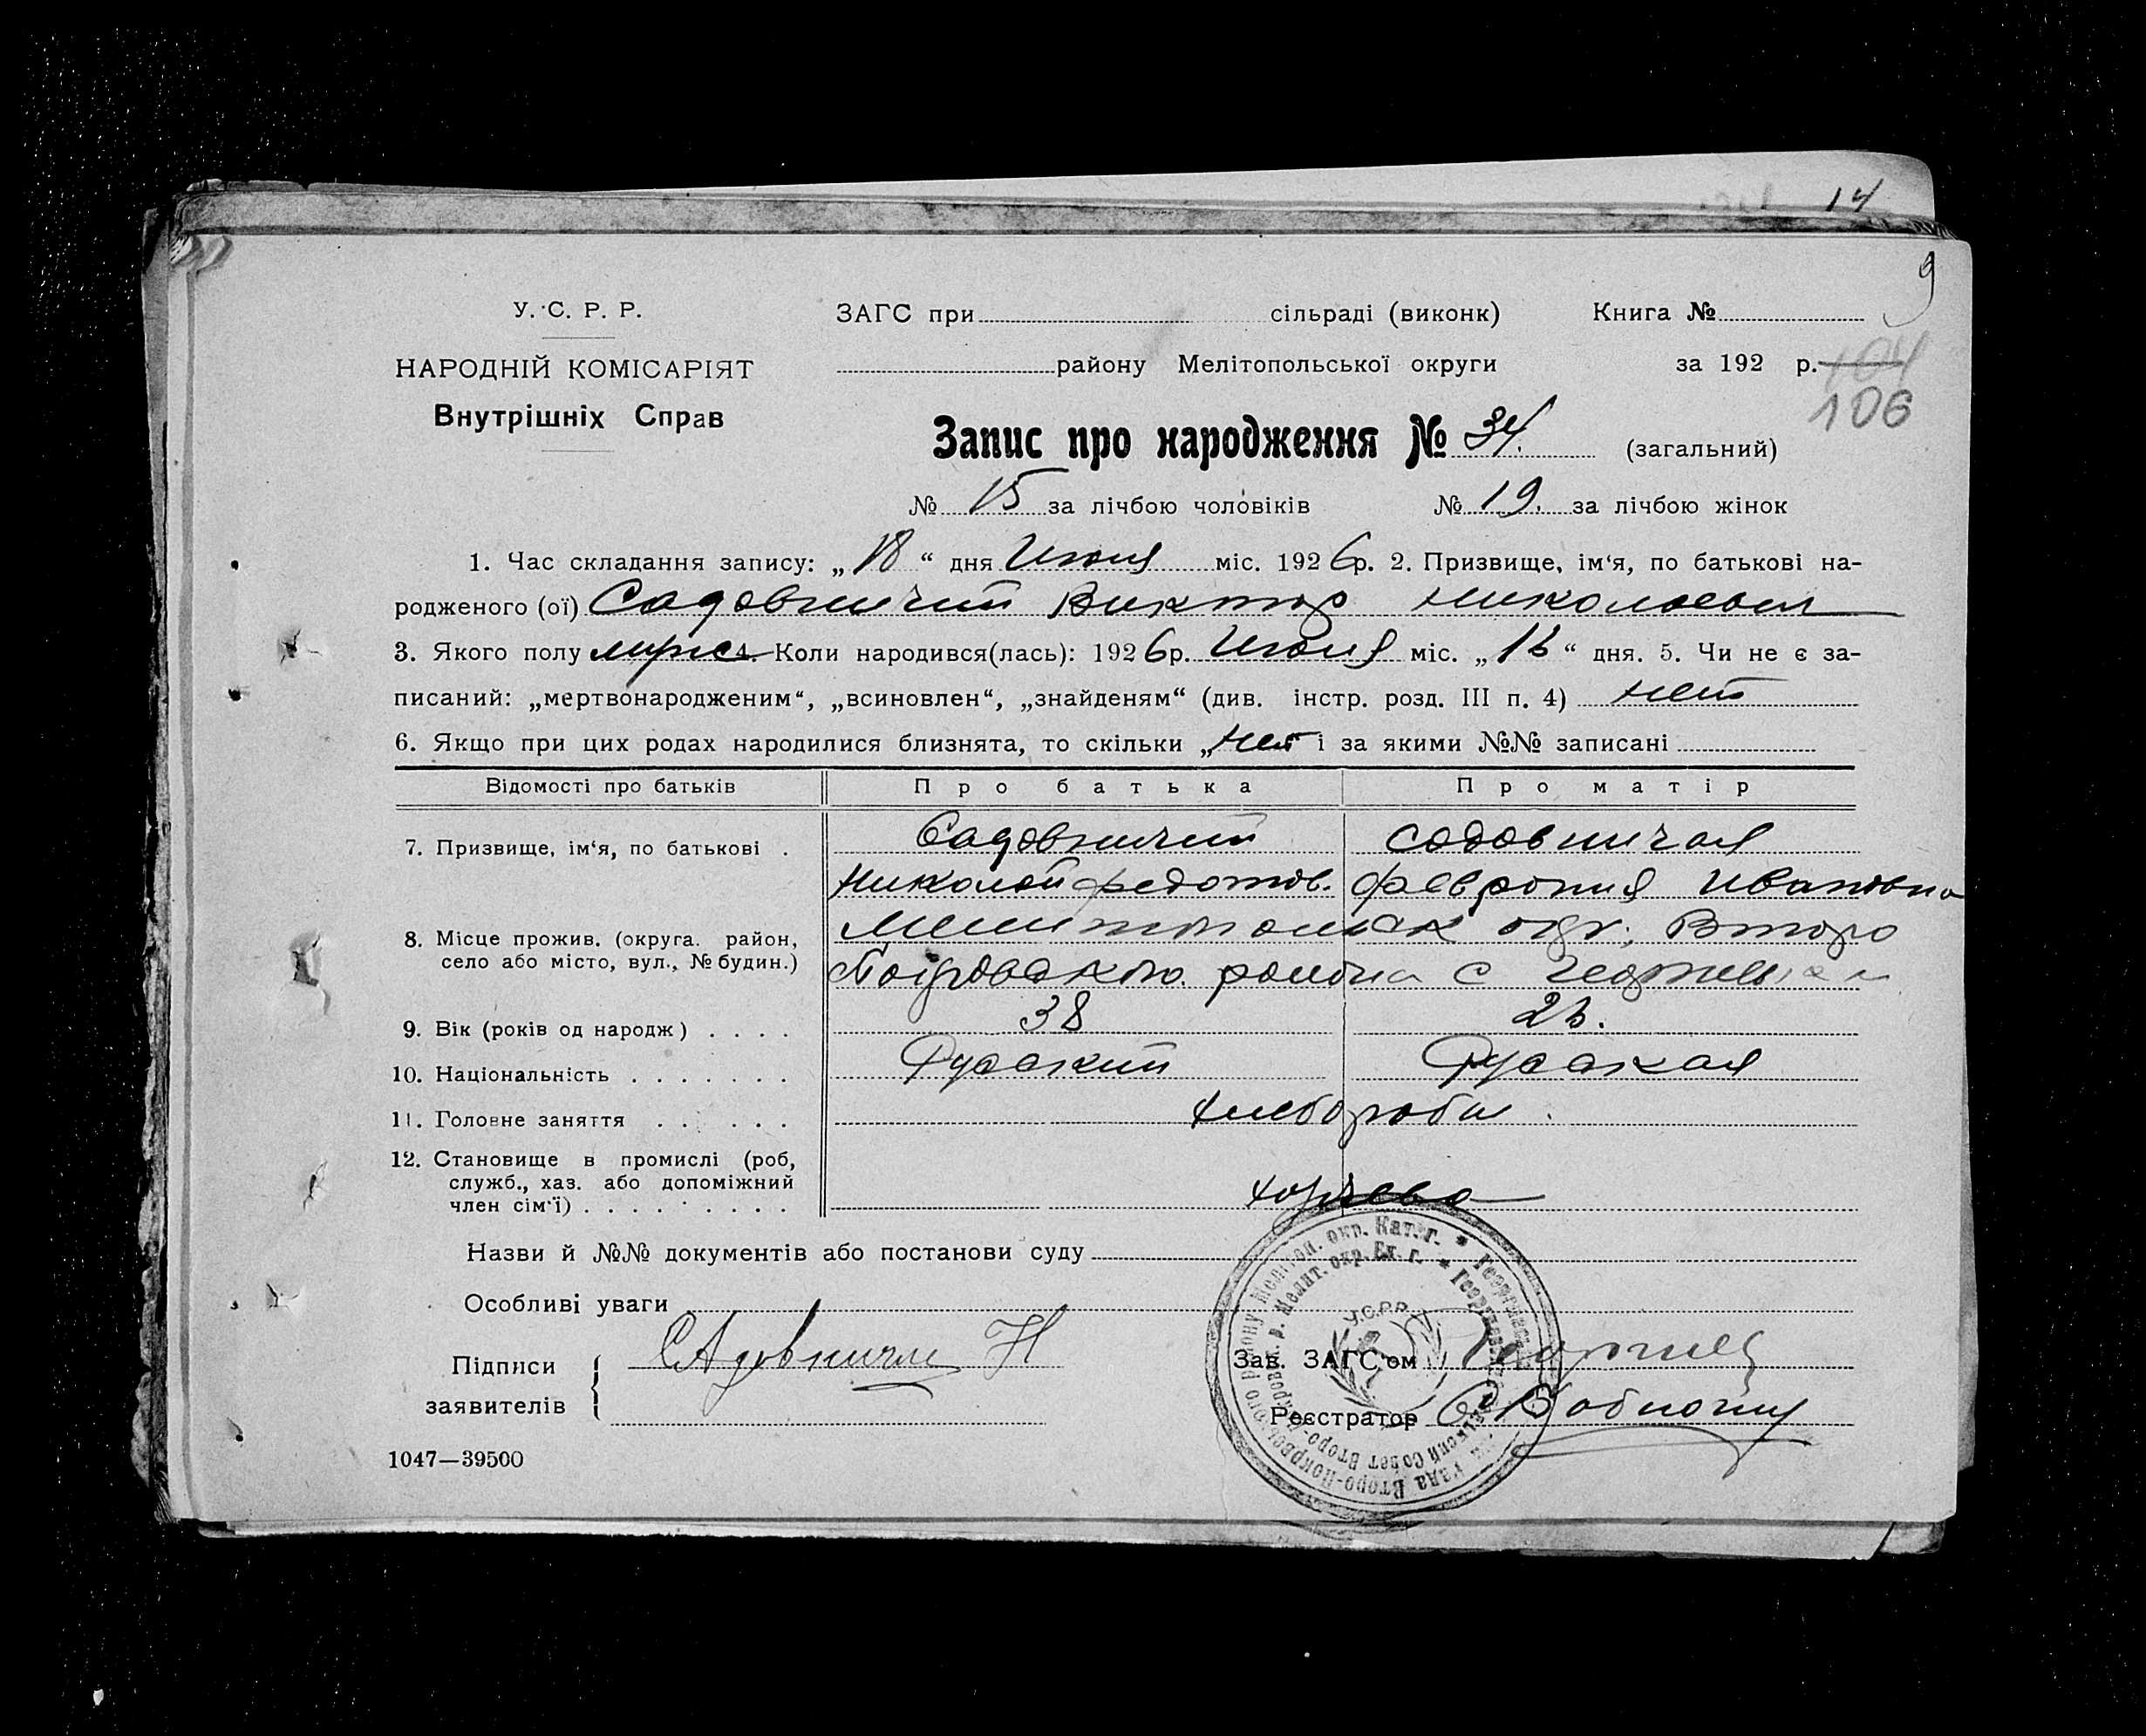 14
9
У. С. Р. Р.
НАРОДНІЙ КОМІСАРІЯТ
Внутрішніх Справ
ЗАГС при сільраді (виконк) Книга №
району Мелітопольської округи за 192 р. 104
106
Запис про народження № 34. (загальний)
№ 15 за лічбою чоловіків № 19. за лічбою жінок
1. Час складання запису: „18“ дня міс. 1926р. 2. Призвище, ім‘я, по батькові на-
родженого (ої) Садовничий Виктор Николаевич
3. Якого полу 4. Коли народився(лась): 1926р. міс. „ “ дня. 5. Чи не є за-
писаний: „мертвонародженим“, „всиновлен“, „знайденям“ (див. інстр. розд. III п. 4) нет
6. Якщо при цих родах народилися близнята, то скільки „нет і за якими №№ записані
Відомості про батьків Про батька Про матір
7. Призвище, ім‘я, по батькові . Садовничий Садовничая
Николай Федотов. Феврония Ивановна
8. Місце прожив. (округа. район, село або місто, вул., № будин.) Мелитопольск окр., Второ
Покровского района с
9. Вік (років од народж) . . . . 38
10. Національність . . . . . . . Русский Русская
11. Головне заняття . . . . . . хлеборобы.
12. Становище в промислі (роб,
служб., хаз. або допоміжний
член сім‘ї) . . . . . . . . .
Назви й №№ документів або постанови суду
Особливі уваги
Підписи заявителів { САдовничи Н
Зав. ЗАГС‘ом
Реєстратор
У.С.Р.Р.
1047—39500